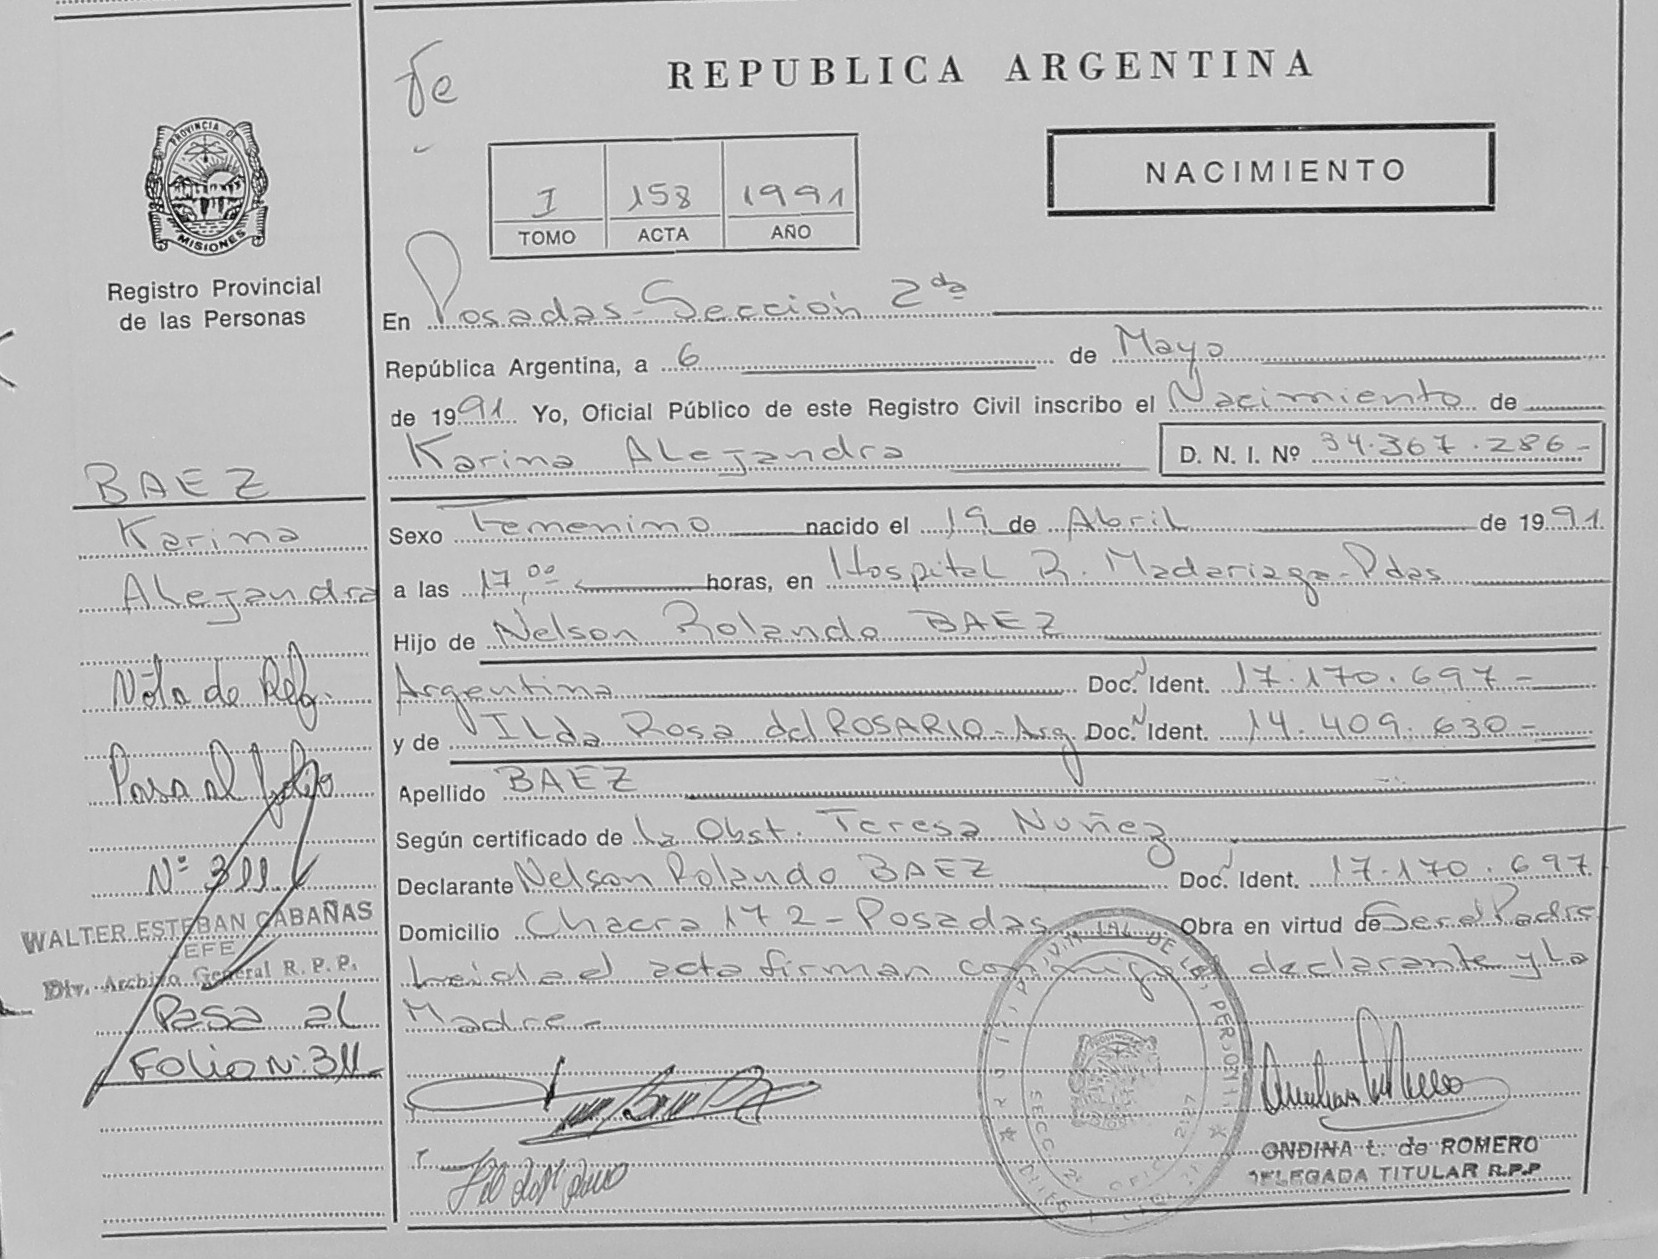 Fe
REPUBLICA ARGENTINA
PROVINCIA DE
MISIONES
Registro Provincial
de las Personas
NACIMIENTO
I 158 1991
TOMO ACTA AÑO
En Posadas - Sección 2da
República Argentina, a 6 de Mayo
de 1991 Yo, Oficial Público de este Registro Civil inscribo el Nacimiento de
Karina Alejandra D. N. I. Nº 34.367.286-
Sexo Femenino nacido el 19 de Abril de 1991.
a las 17,00 horas, en Hospital R. Madariaga-Pdas
Hijo de Nelson Rolando BAEZ
Argentina Doc. N Ident. 17.170.697-
y de ILda Rosa del ROSARIO - Arg Doc. N Ident. 14.409.630-
Apellido BAEZ
Según certificado de La Obst. Teresa Nuñez
Declarante Nelson Rolando BAEZ Doc. N Ident. 17.170.697
Domicilio Chacra 172 - Posadas Obra en virtud de Ser el Padre
Leida el acta firman conmigo el declarante y La
Madre-
BAEZ
Karina
Alejandra
Nota de Ref.
Pasa al folio
Nº 311
WALTER ESTEBAN CABAÑAS
JEFE
Div. Archivo General R. P. P.
Pasa al
Folio Nº 311
SECC. 2ª
ONDINA t. de ROMERO
DELEGADA TITULAR R.P.P